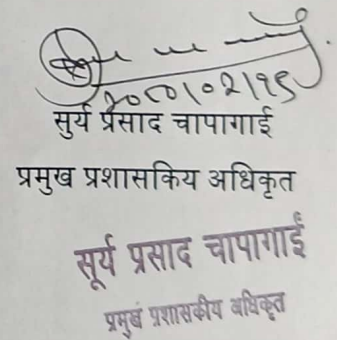 २०८०|०२|१९
सुर्य प्रसाद चापागाई
प्रमुख प्रशासकिय अधिकृत
सूर्य प्रसाद चापागाईं
प्रमुख प्रशासकीय अधिकृत